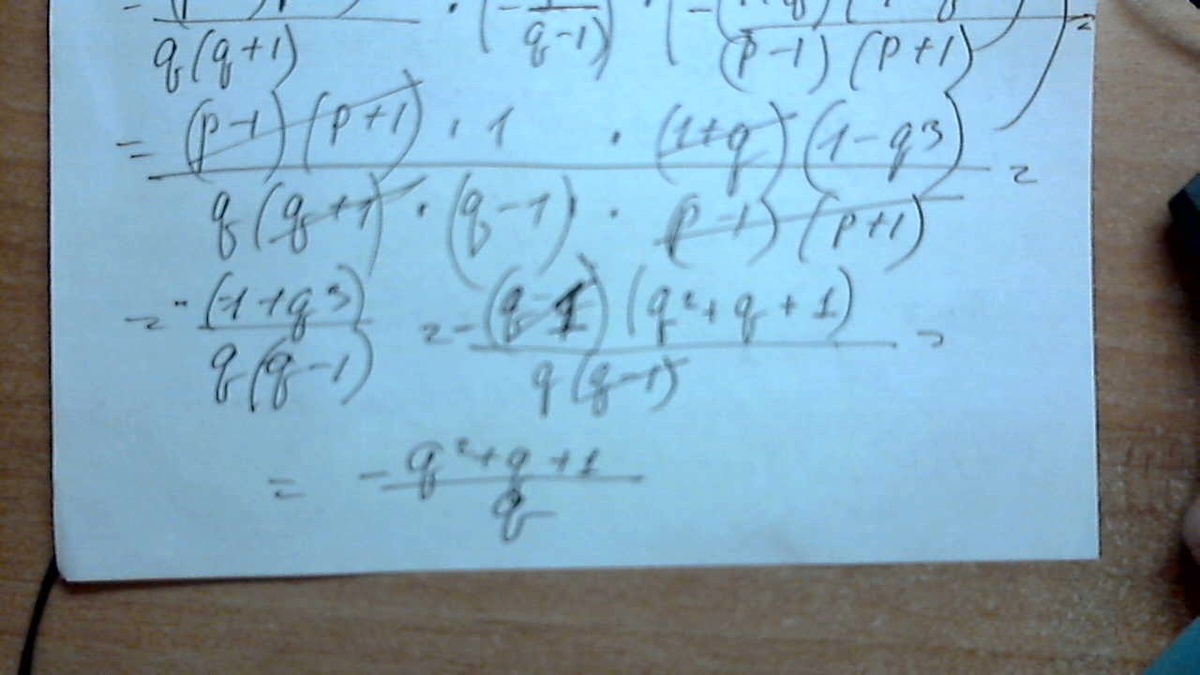 q(q+1) · (- q-1) · (- (p-1)(p+1) ) =
= (p-1)(p+1) · 1 · (1+q)(1-q3) =
q(q+1) · (q-1) · p-1)(p+1)
= -(-1+q3) = -(q-1)(q²+q+1) =
q(q-1) q(q-1)
= - q²+q+1
q